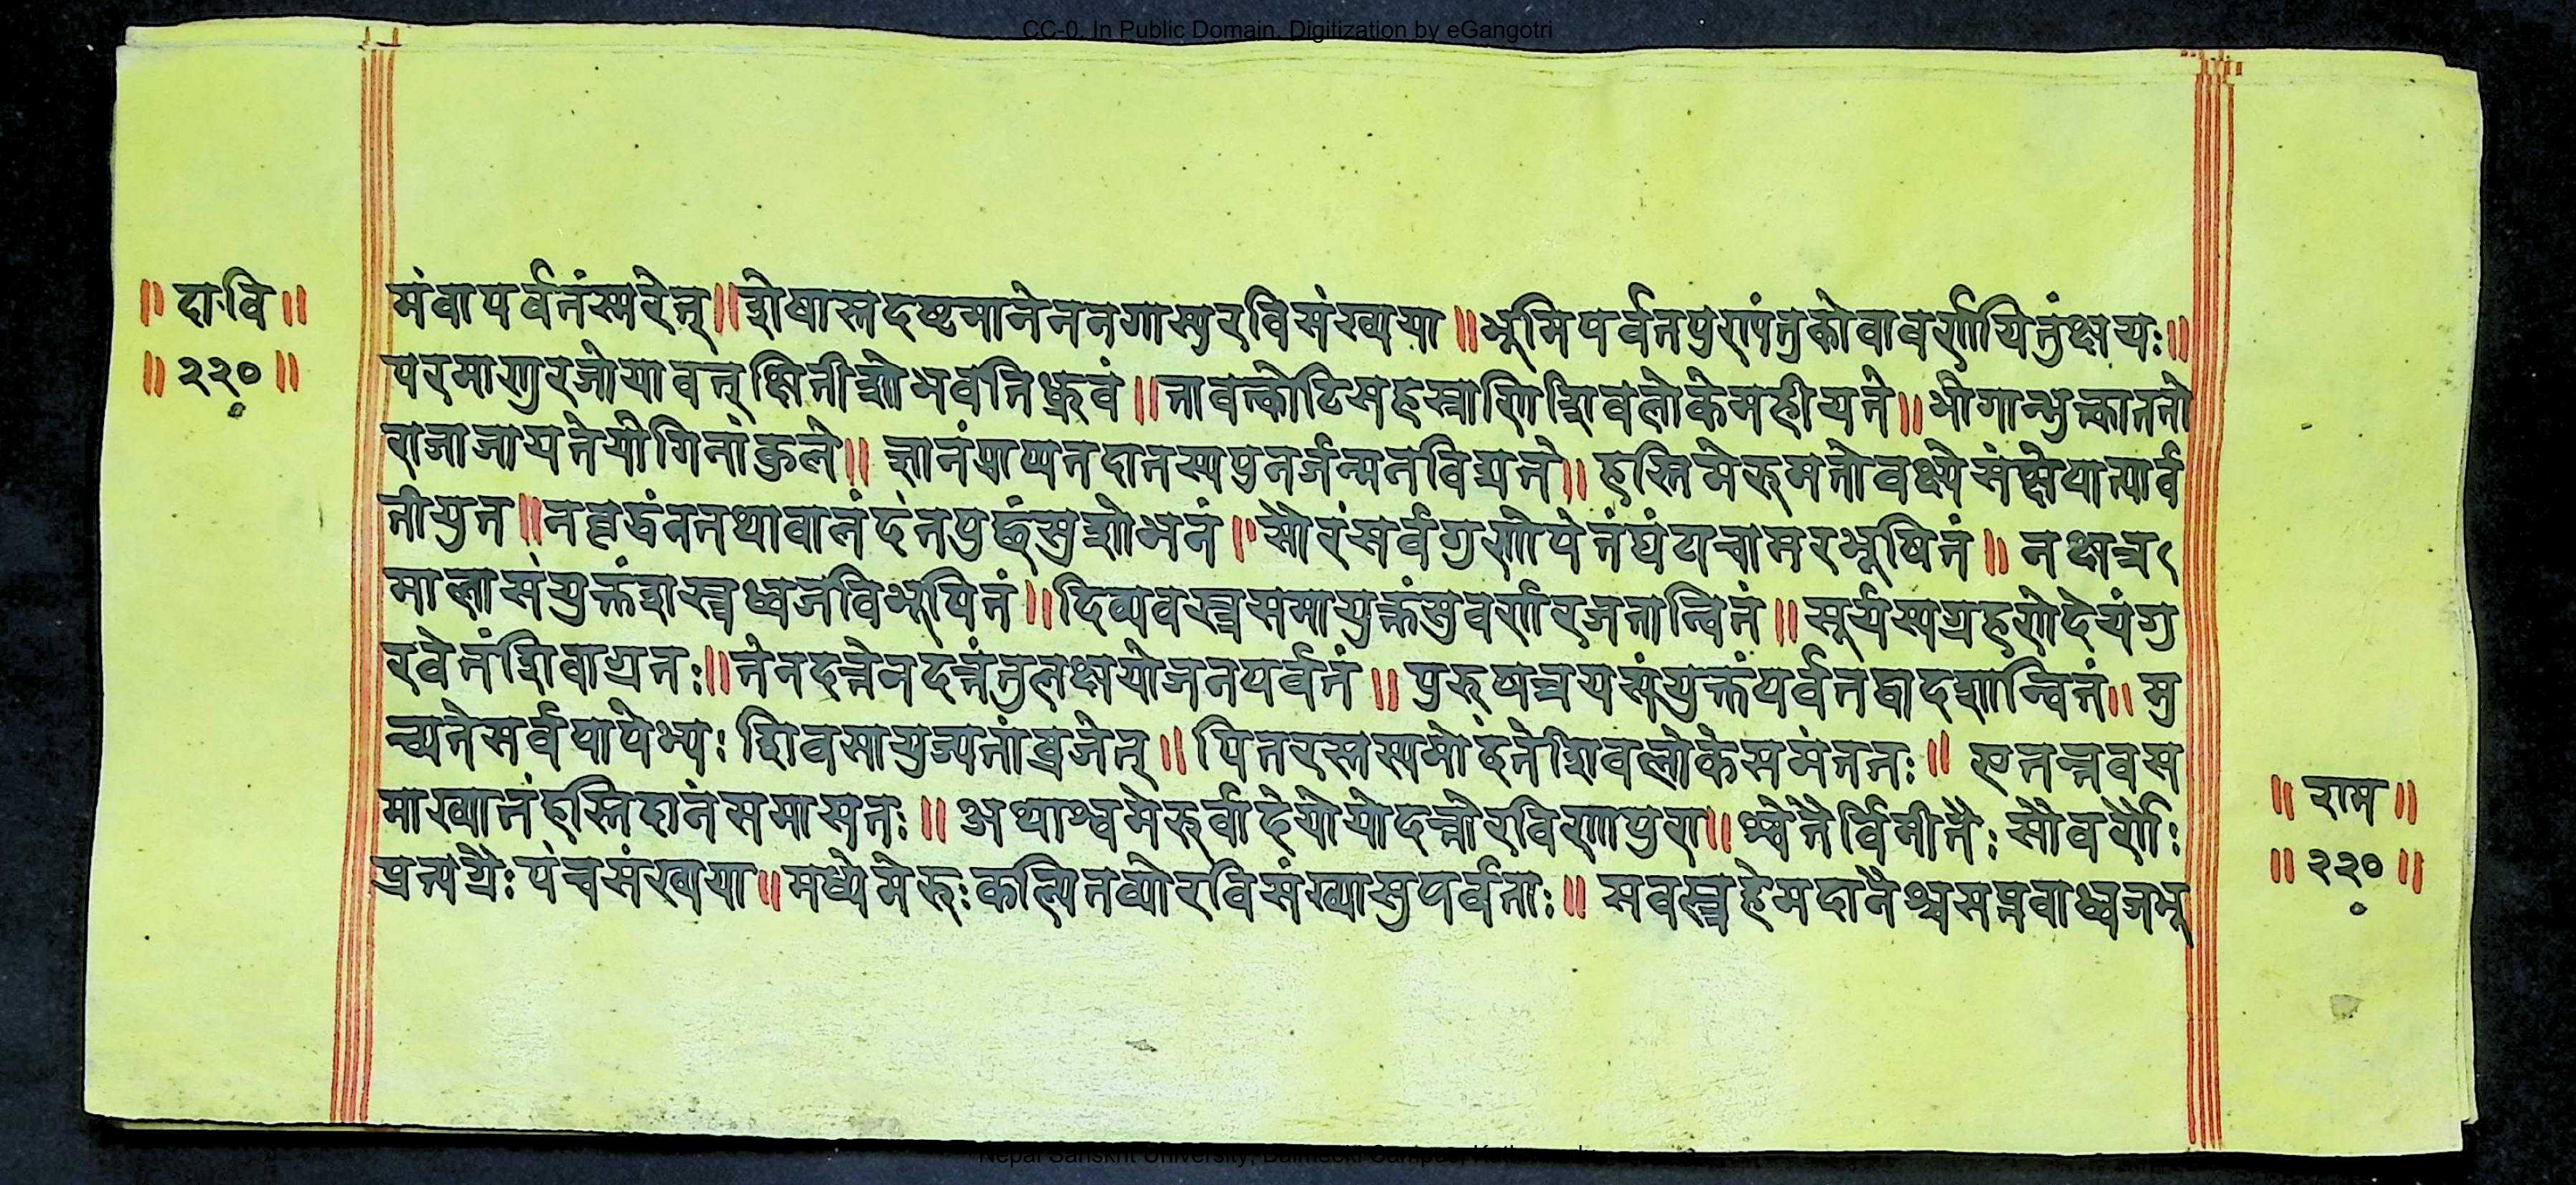 CC-0. In Public Domain. Digitization by eGangotri
॥ दा॰वि ॥
॥ २२० ॥
मंवापर्वतंस्मरेत्॥शेषास्तदष्टमानेननगास्युरविसंख्यया॥भूमिपर्वतपुरापंतुकोवावर्णयितुंक्षयः॥
परमाणुरजोयावत्क्षितीशोभवतिध्रुवं॥तावत्कोटिसहस्राणिशिवलोकेमहीयते॥भोगान्भुत्काततो
राजाजायतेयोगिनांकुले॥ज्ञानंप्राप्यनदानस्यपुनर्जन्मनविद्यते॥हस्तिमेरुमतोवक्ष्येसंक्षेपात्पार्व
तीयुत॥तद्वडंवतथावालंदंतपुछंसुशोभनं॥सौरंसर्वगुणोपेतंघंटाचामरभूषितं॥नक्षत्र
मालासंयुक्तंशस्त्रध्वजविभूषितं॥दिव्यवस्त्रसमायुक्तंसुवर्णरजतान्वितं॥सूर्यस्यग्रहणेदेयंगु
रवेतंशिवाग्रतः॥तेनदत्तेनदत्तंतुलक्षयोजनपर्वतं॥पुरुषत्रयसंयुक्तंपर्वतद्वादशान्वितं॥मु
च्यतेसर्वपापेभ्यः शिवसायुज्यतांव्रजेत्॥पितरस्तस्यमोदंतेशिवलोकेसमंततः॥ एतत्तवस
माख्यातंहस्तिदानंसमासतः॥अथाश्वमेरुर्वादेयोयोदत्तोरविणापुरा॥श्वेतैर्विमीतैः सौवर्णैः
प्रत्यग्रैः पंचसंख्यया॥मध्येमेरुः कल्पितव्योरविसंख्यासुपर्वताः॥सवस्त्रहेमदानैश्चसप्तवाध्वजभू
॥ राम ॥
॥ २२० ॥